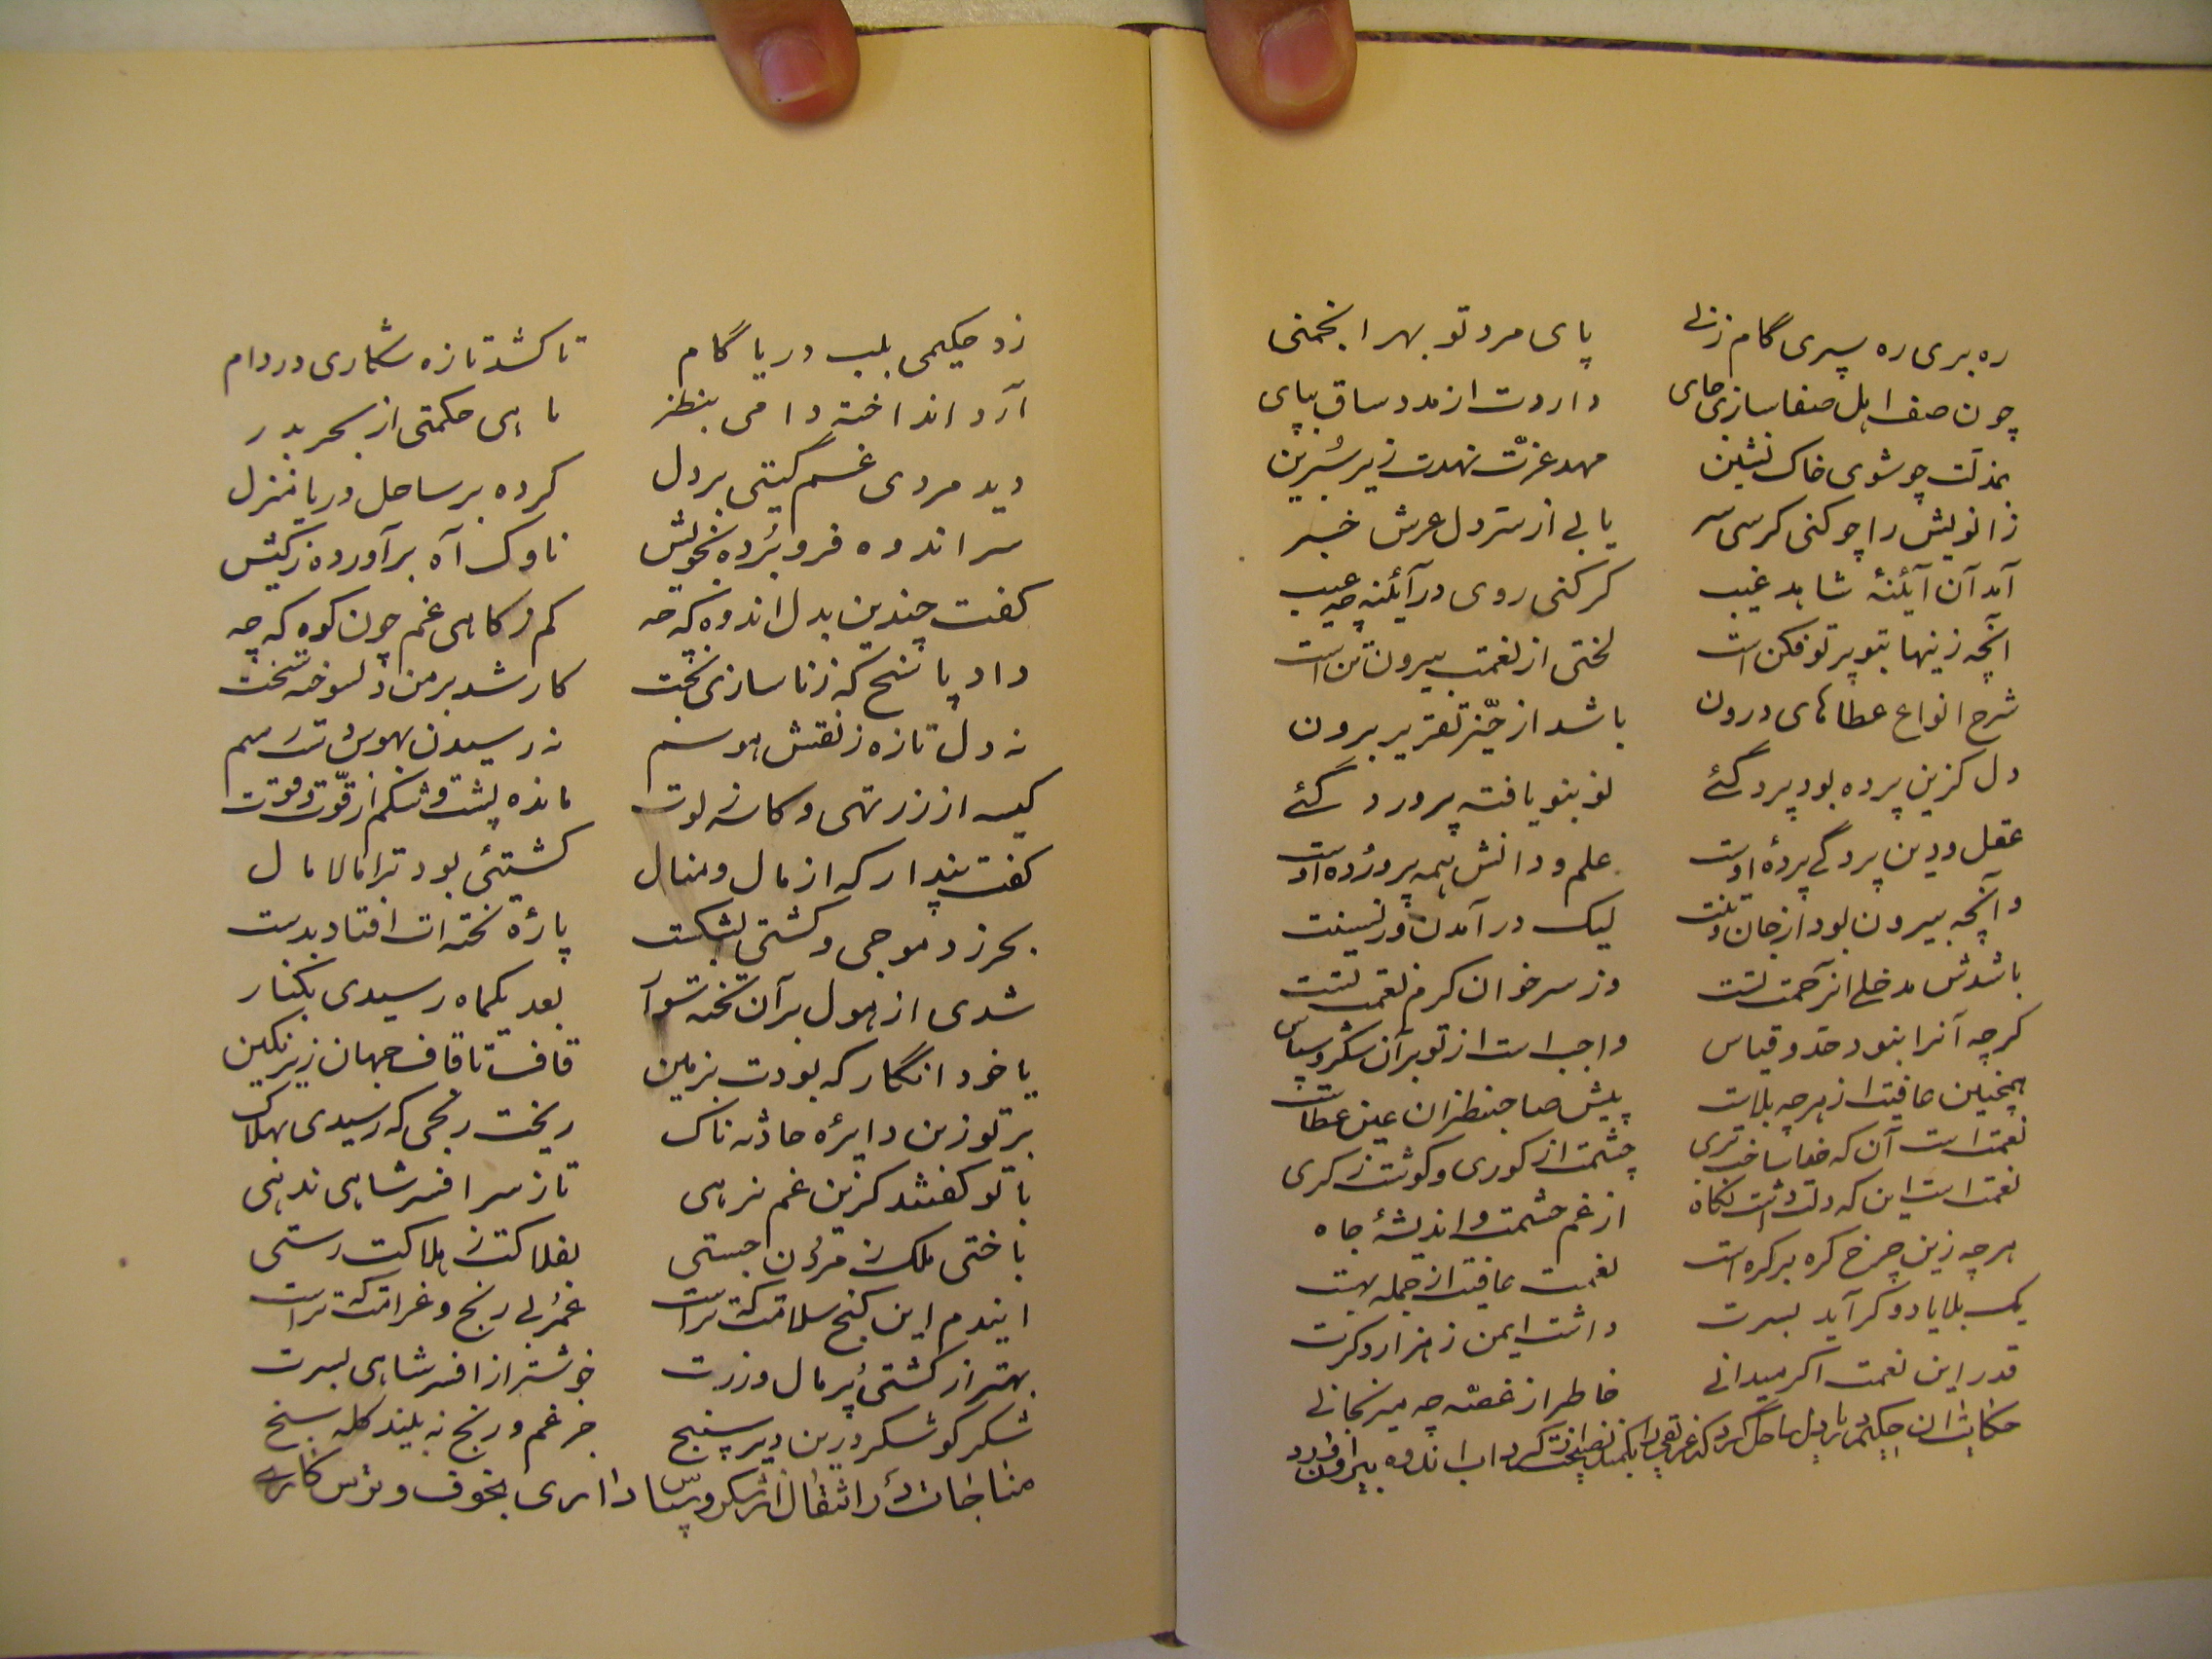 ره بری ره سپری گام زنی پای مرد تو بهر انجمنی
چون صف اهل صفا سازی جای داردت از مدد ساق بپای
بمذلت چو شوی خاک نشین مهد عزّت نهدت زیر سُرین
زانویش را چو کنی کرسی سر یابی از سر دل عرش خبر
آمد آن آیٔنهٔ شاهد غیب کر کنی روی در آیٔنه چه عیب
آنچه زینها بتو پرتو فکن است لختی از نعمت بیرون تن است
شرح انواع عطاهای درون باشد از حیّز تقریر برون
دل کزین پرده بود پردگئی نو بنو یافته پروردگئی
عقل و دین پردگی پردهٔ اوست علم و دانش همه پرورده اوست
وآنچه بیرون بود از جان و تنت لیک در آمدن و زیستنت
باشدش مدخلی از رحمت تست وز سر خوان کرم نعمت تست
کرچه آنرا نبود حدّ و قیاس واجب است از تو بر آن شکر و سپاس
همچنین عافیت از هرچه بلاست پیش صاحبنظران عین عطاست
نعمت است آن که خدا ساخت بری چشمت از کوری و کوشت ز کری
نعمت است این که دلت داشت نکاه از غم حشمت و اندیشهٔ جاه
هرچه زین چرخ کره بر کره است نعمت عافیت از جمله بهست
یک بلا یا دو کر آید بسرت داشت ایمن ز هزار دکرت
قدر این نعمت اکر میدانی خاطر از غصّه چه میرنجانی
حکایت ان حکیم که بر ساحل دریا اندوه بیرون آورد
زد حکیمی بلب دریا گام تا کشد تازه شکاری در دام
آرد انداخته دامی بنظر ماهی حکمتی از بحر بدر
دید مردی غم گیتی بر دل کرده بر ساحل دریا منزل
سر اندوه فرو برُده بخویش ناوک آه برآورده ز کیش
کفت چندین بدل اندوه که چه کم ز کاهی غم چون کوه که چه
داد پاسخ که ز ناسازی بخت کار شد بر من دلسوخته سخت
نه دل تازه ز نقش هوسم نه رسیدن بهوس دسترسم
کیسه از زر تهی و کاسه ز لوت مانده پشت و شکم از قوّت و قوت
کفت پندار که از مال و منال کشتیئی بود ترا مالامال
بحر زد موجی و کشتی بشکست پارهٔ تخته‌ات افتاد بدست
شدی از هول بر آن تخته سوار بعد یکماه رسیدی بکنار
یا خود انگار که بودت بزمین قاف تا قاف جهان زیر نکین
بر تو زین دایرهٔ حادثه ناک ریخت رنجی که رسیدی بهلاک
با تو کفتند کزین غم نرهی تا ز سر افسر شاهی ننهی
باختی ملک ز مردن جستی بفلاکت ز هلاکت رستی
ایندم این کنج سلامت که تراست عمر بی رنج و غرامت که تراست
بهتر از کشتی پُر مال و زرت خوشتر از افسر شاهی بسرت
شکر کو شکر درین دیر سپنج جز غم و رنج نه بیند کله سنج
مناجات در انتقال از شکر و سپاس داری بخوف و ترس کاری